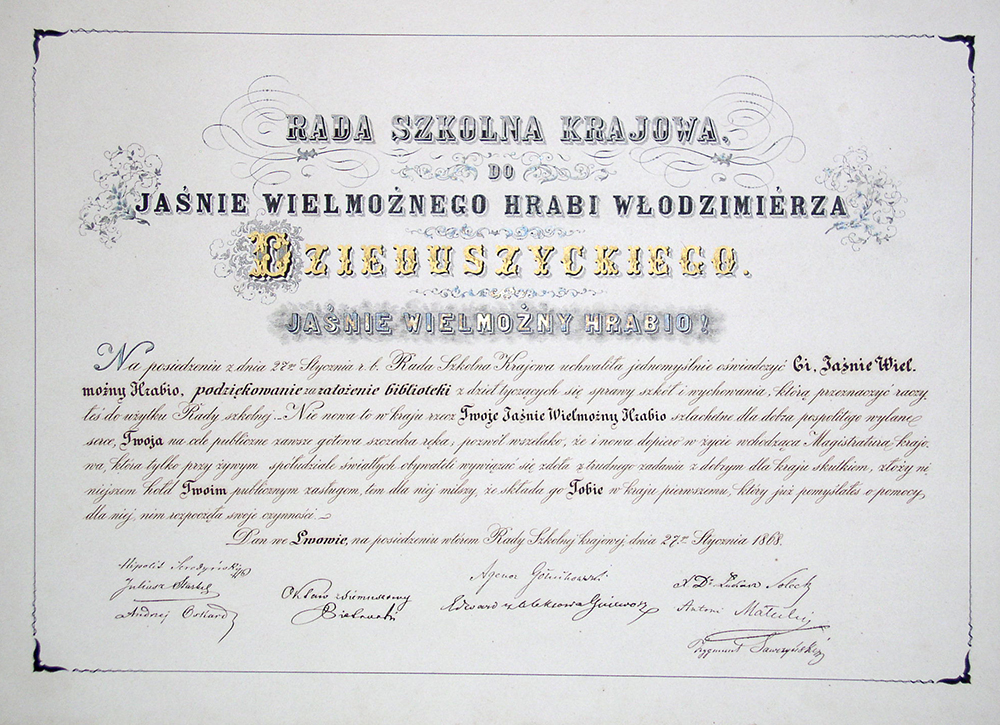 RADA SZKOLNA KRAJOWA,
DO
JAŚNIE WIELMOŻNEGO HRABI WŁODZIMIÉRZA
DZIEDUSZYCKIEGO.
JAŚNIE WIELMOŻNY HRABIO!
Na posiedzeniu z dnia 27go Stycznia r. b. Rada Szkolna Krajowa uchwaliła jednomyślnie oświadczyć Ci, Jaśnie Wiel.
możny Hrabio, podziękowanie za założenie biblioteki z dzieł tyczących się sprawy szkół i wychowania, którą przeznaczyć raczy,
łeś do użytku Rady szkolnej. Nie nowa to w kraju rzecz Twoje Jaśnie Wielmożny Hrabio szlachetne dla dobra pospolitego wylane
serce, Twoja na cele publiczne zawsze gotowa szczodra ręka; pozwól wszelako, że i nowa dopiero w życie wchodząca Magistratura krajo,
wa, która tylko przy żywym spółudziale światłych obywateli wywiązać się zdoła z trudnego zadania z dobrym dla kraju skutkiem, złoży ni,
niejszem hołd Twoim publicznym zasługom, tem dla niej milszy, że składa go Tobie w kraju pierwszemu, który już pomyślałeś o pomocy
dla niej, nim rozpoczęła swoje czynności.
Dan we Lwowie, na posiedzeniu wtórem Rady Szkolnej krajowej, dnia 27go Stycznia 1868.
Agenor Gołuchowski
Juliusz Starkel
Edward z Oleksowa Gniewosz
Antoni Małecki
Zygmunt Sawczyński